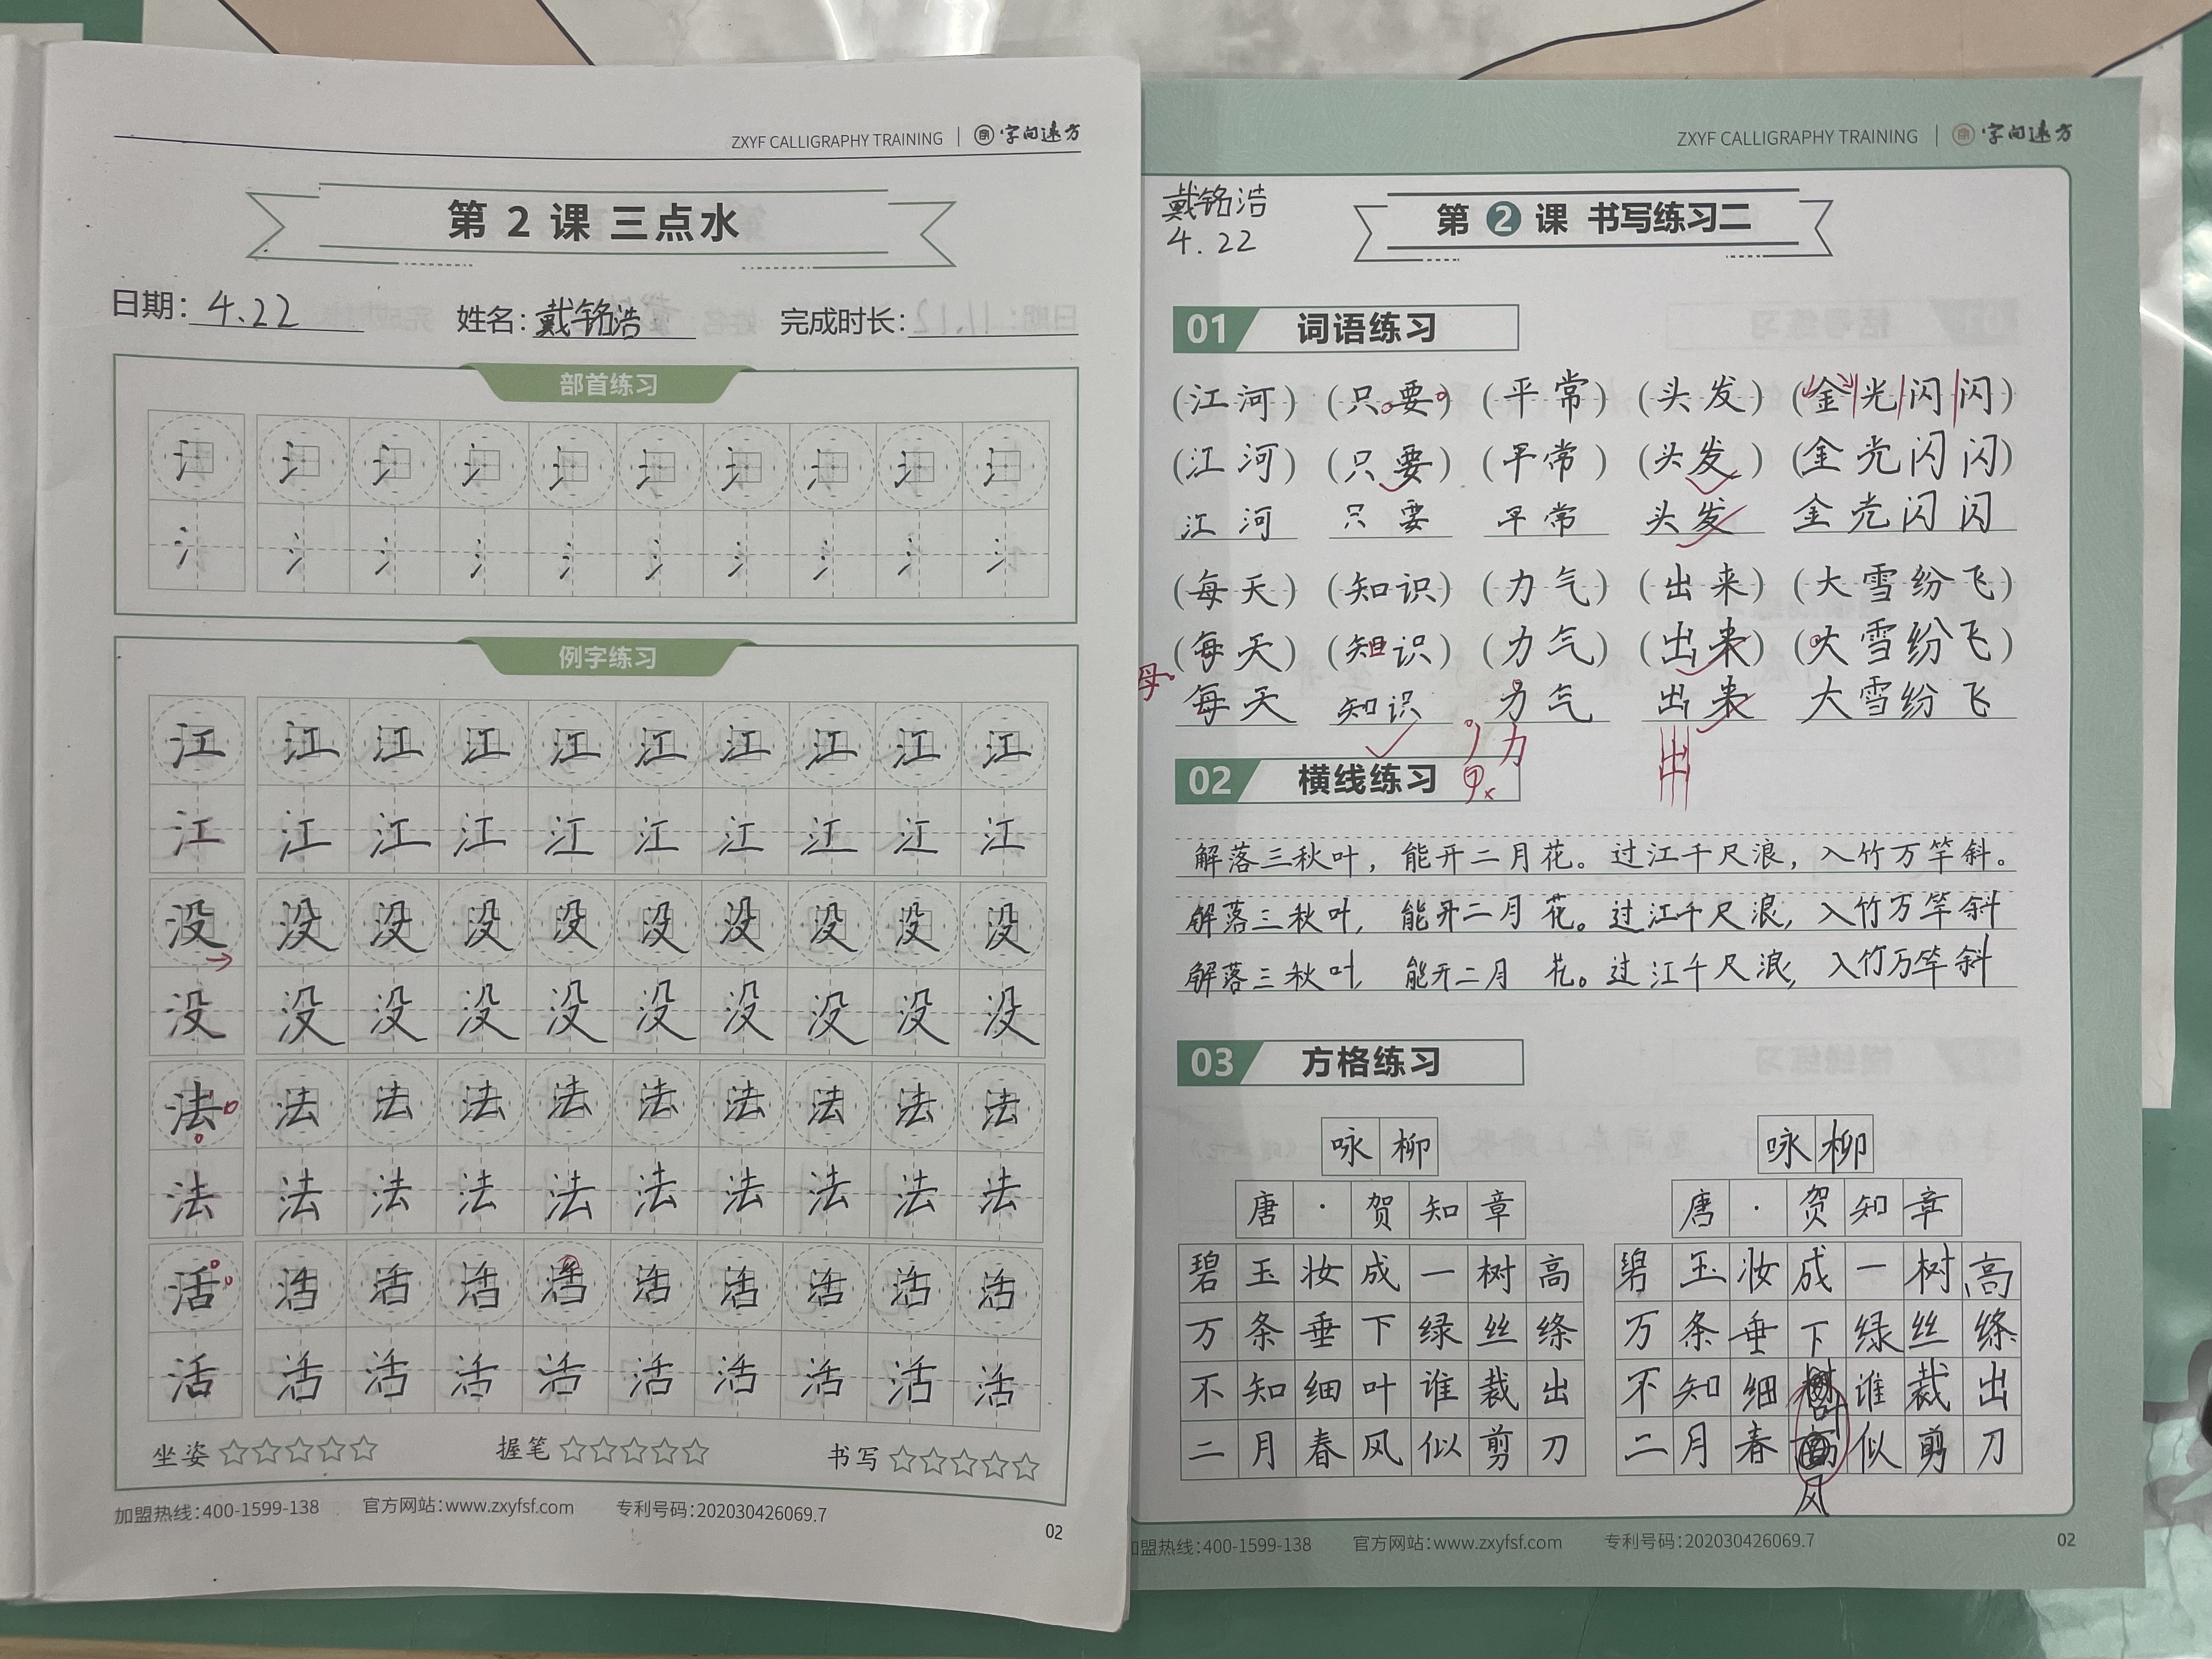 ZXYF CALLIGRAPHY TRAINING | 字间远方
第 2 课 三点水
日期: 4.22 姓名: 戴铭浩 完成时长:
部首练习
氵 氵 氵 氵 氵 氵 氵 氵 氵 氵
氵 氵 氵 氵 氵 氵 氵 氵 氵 氵
例字练习
江 江 江 江 江 江 江 江 江 江
江 江 江 江 江 江 江 江 江 江
没 没 没 没 没 没 没 没 没 没
没 没 没 没 没 没 没 没 没 没
法 法 法 法 法 法 法 法 法 法
法 法 法 法 法 法 法 法 法 法
活 活 活 活 活 活 活 活 活 活
活 活 活 活 活 活 活 活 活 活
坐姿☆☆☆☆☆ 握笔☆☆☆☆☆ 书写☆☆☆☆☆
加盟热线:400-1599-138 官方网站:www.zxyfsf.com 专利号码:202030426069.7
02
ZXYF CALLIGRAPHY TRAINING | 字间远方
戴铭浩
4.22
第 2 课 书写练习二
01 词语练习
(江河) (只要) (平常) (头发) (金光闪闪)
(江河) (只要) (平常) (头发) (金光闪闪)
江河 只要 平常 头发 金光闪闪
(每天) (知识) (力气) (出来) (大雪纷飞)
(每天) (知识) (力气) (出来) (大雪纷飞)
母
每天 知识 力气 出来 大雪纷飞
力 出
02 横线练习
解落三秋叶，能开二月花。过江千尺浪，入竹万竿斜。
解落三秋叶，能开二月花。过江千尺浪，入竹万竿斜
解落三秋叶，能开二月花。过江千尺浪，入竹万竿斜
03 方格练习
咏柳
唐·贺知章
碧玉妆成一树高
万条垂下绿丝绦
不知细叶谁裁出
二月春风似剪刀
咏柳
唐·贺知章
碧玉妆成一树高
万条垂下绿丝绦
不知细叶谁裁出
二月春风似剪刀
加盟热线:400-1599-138 官方网站:www.zxyfsf.com 专利号码:202030426069.7
02